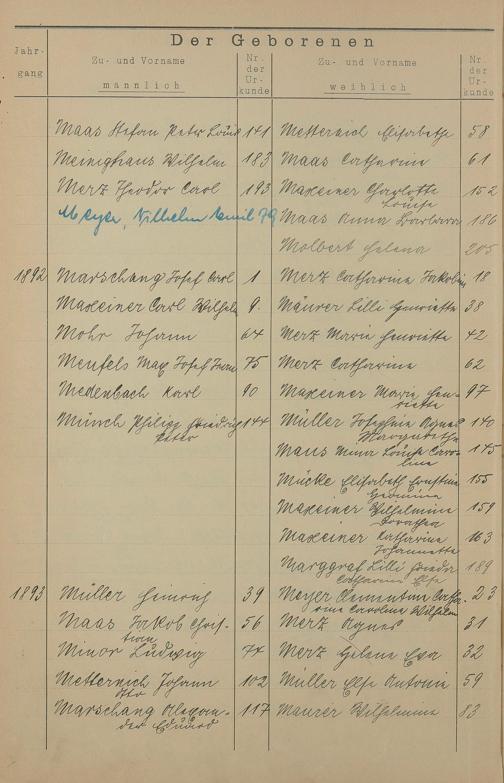 Der Geborenen
Jahr-
gang
Zu- und Vorname
männlich
Nr.
der
Ur-
kunde
Zu- und Vorname
weiblich
Nr.
der
Ur-
kunde
Maas Stefan Peter Louis 141 Metternich Elisabetha 58
Meininghaus Wilhelm 183 Maas Catharina 61
Merz Theodor Carl 193 Maxeiner Charlotte 152
Louise
Meyer, Wilhelm Emil 79 Maas Anna Barbara 186
Molbert Helena 205
1892 Marschang Josef Carl 1 Merz Catharina Jakobin 18
Maxeiner Carl Wilhelm 9. Mäurer Lilli Henriette 38
Mohr Johann 64 Merz Marie Henriette 42
Josef 75 Merz Catharina 62
Medenbach Karl 90 Maxeiner Marie Hen- 97
riette
Münch Philipp Friedrich 144 Müller Josephine Agnes 140
Peter Margaretha
Maus Louise Caro- 145
line
Mücke Elisabeth Ernstine 155
Maxeiner Wilhelmine 159
Dorothea
Maxeiner Katharina 163
Johannette
Marggraf Lilli 189
Catharina Else
1893 Müller Heinrich 39 Meyer Clementine Catha- 23
rine Caroline Wilhelm
Maas Jakob Chris- 56 Merz Agnes 31
tian
Minor Ludwig 74 Merz Helene Eva 32
Metternich Johann 102 Müller Else Antonie 59
Otto
Marschang Alexan- 117 Maurer Wilhelmine 83
der Eduard